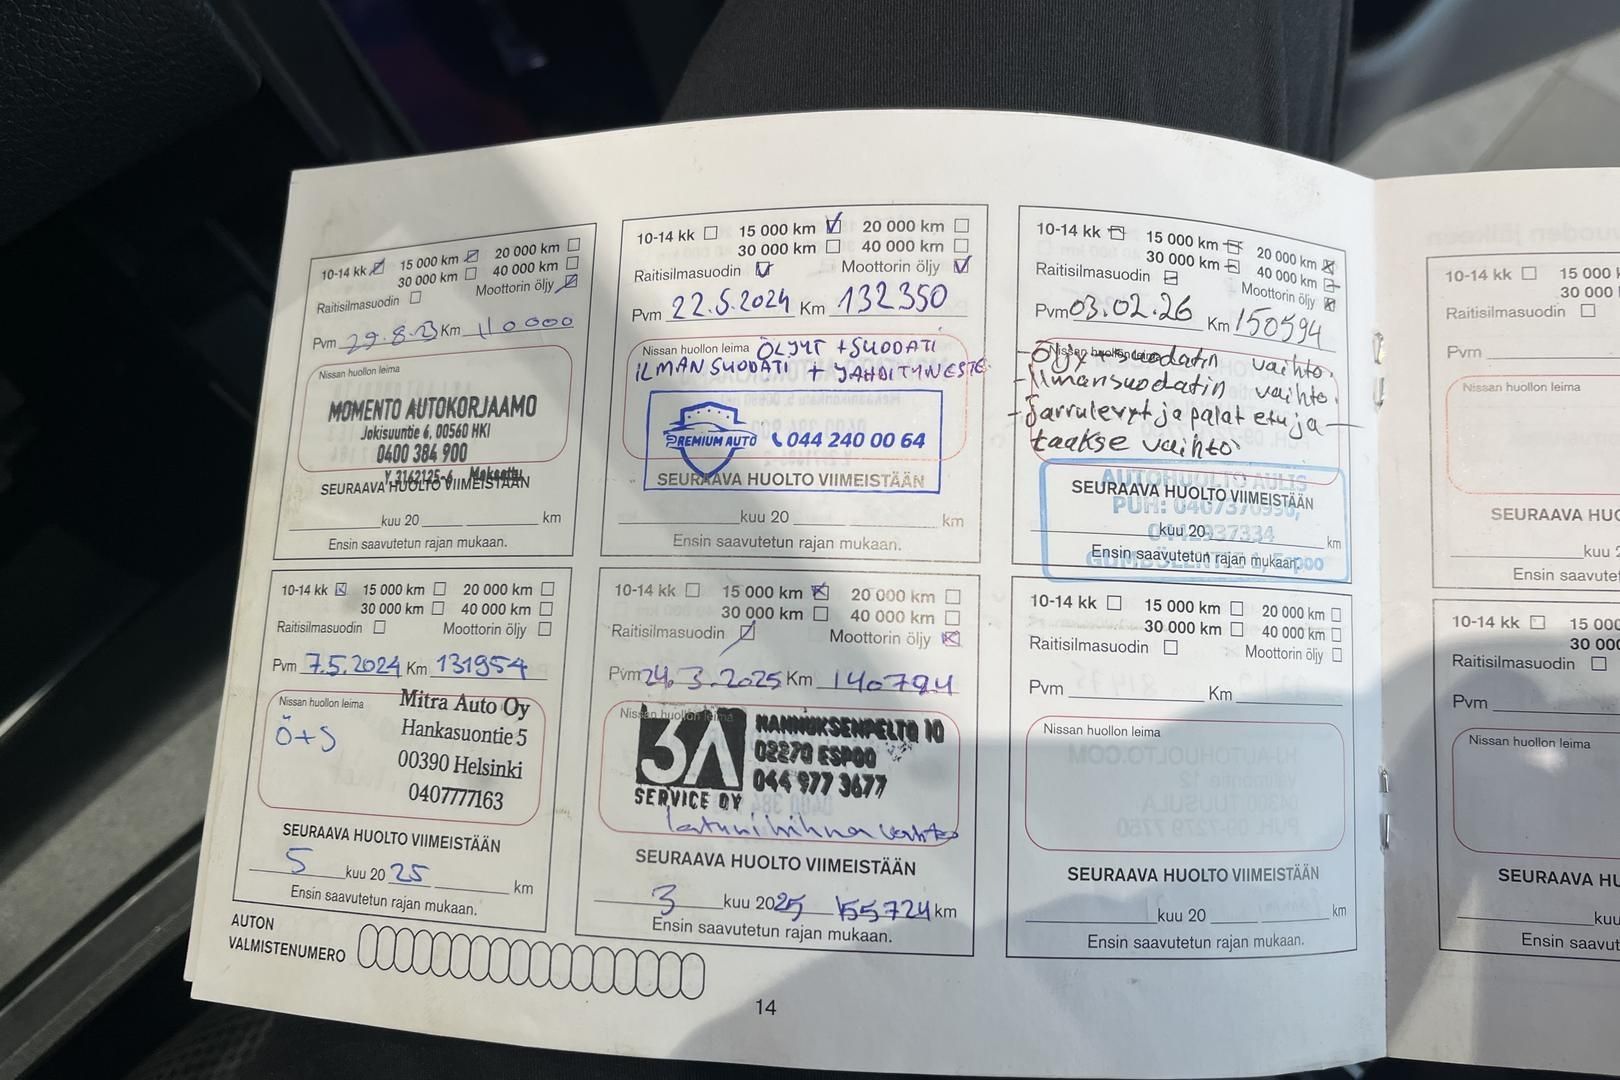 10-14 kk 15 000 km 20 000 km
30 000 km 40 000 km
Raitisilmasuodin Moottorin öljy
Pvm 29.8.23 Km 110000
Nissan huollon leima
MOMENTO AUTOKORJAAMO
Jokisuuntie 6, 00560 HKI
0400 384 900
Y. 3162125-6
SEURAAVA HUOLTO VIIMEISTÄÄN
kuu 20 km
Ensin saavutetun rajan mukaan.
10-14 kk 15 000 km 20 000 km
30 000 km 40 000 km
Raitisilmasuodin Moottorin öljy
Pvm 22.5.2024 Km 132350
Nissan huollon leima ÖLJYT + SUODATI
ILMAN SUODATI + JÄHDITYNESTE
PREMIUM AUTO 044 240 00 64
SEURAAVA HUOLTO VIIMEISTÄÄN
kuu 20 km
Ensin saavutetun rajan mukaan.
10-14 kk 15 000 km 20 000 km
30 000 km 40 000 km
Raitisilmasuodin Moottorin öljy
Pvm 03.02.26 Km 150594
Nissan huollon leima
- Öljy + suodatin vaihto.
- Ilmansuodatin vaihto.
- Jarrulevyt ja palat etu ja
taakse vaihto
AUTOHUOLTO AULIS
SEURAAVA HUOLTO VIIMEISTÄÄN
PUH: 0407370990,
0442937334
kuu 20 km
Ensin saavutetun rajan mukaan.
Espoo
10-14 kk 15 000 km 20 000 km
30 000 km 40 000 km
Raitisilmasuodin Moottorin öljy
Pvm 7.5.2024 Km 131954
Nissan huollon leima
Ö+S
Mitra Auto Oy
Hankasuontie 5
00390 Helsinki
0407777163
SEURAAVA HUOLTO VIIMEISTÄÄN
5 kuu 20 25 km
Ensin saavutetun rajan mukaan.
10-14 kk 15 000 km 20 000 km
30 000 km 40 000 km
Raitisilmasuodin Moottorin öljy
Pvm 24.3.2025 Km 140724
Nissan huollon leima
3A SERVICE OY
HANNUKSENPELTO 10
02270 ESPOO
044 977 3677
laturinhihna vaihto
SEURAAVA HUOLTO VIIMEISTÄÄN
3 kuu 20 25 155724 km
Ensin saavutetun rajan mukaan.
10-14 kk 15 000 km 20 000 km
30 000 km 40 000 km
Raitisilmasuodin Moottorin öljy
Pvm Km
Nissan huollon leima
SEURAAVA HUOLTO VIIMEISTÄÄN
kuu 20 km
Ensin saavutetun rajan mukaan.
AUTON
VALMISTENUMERO
14
10-14 kk 15 000
30 000
Raitisilmasuodin
Pvm
Nissan huollon leima
SEURAAVA HUO
kuu
Ensin saavutet
10-14 kk 15 000
30 000
Raitisilmasuodin
Pvm
Nissan huollon leima
SEURAAVA HU
kuu
Ensin saavut